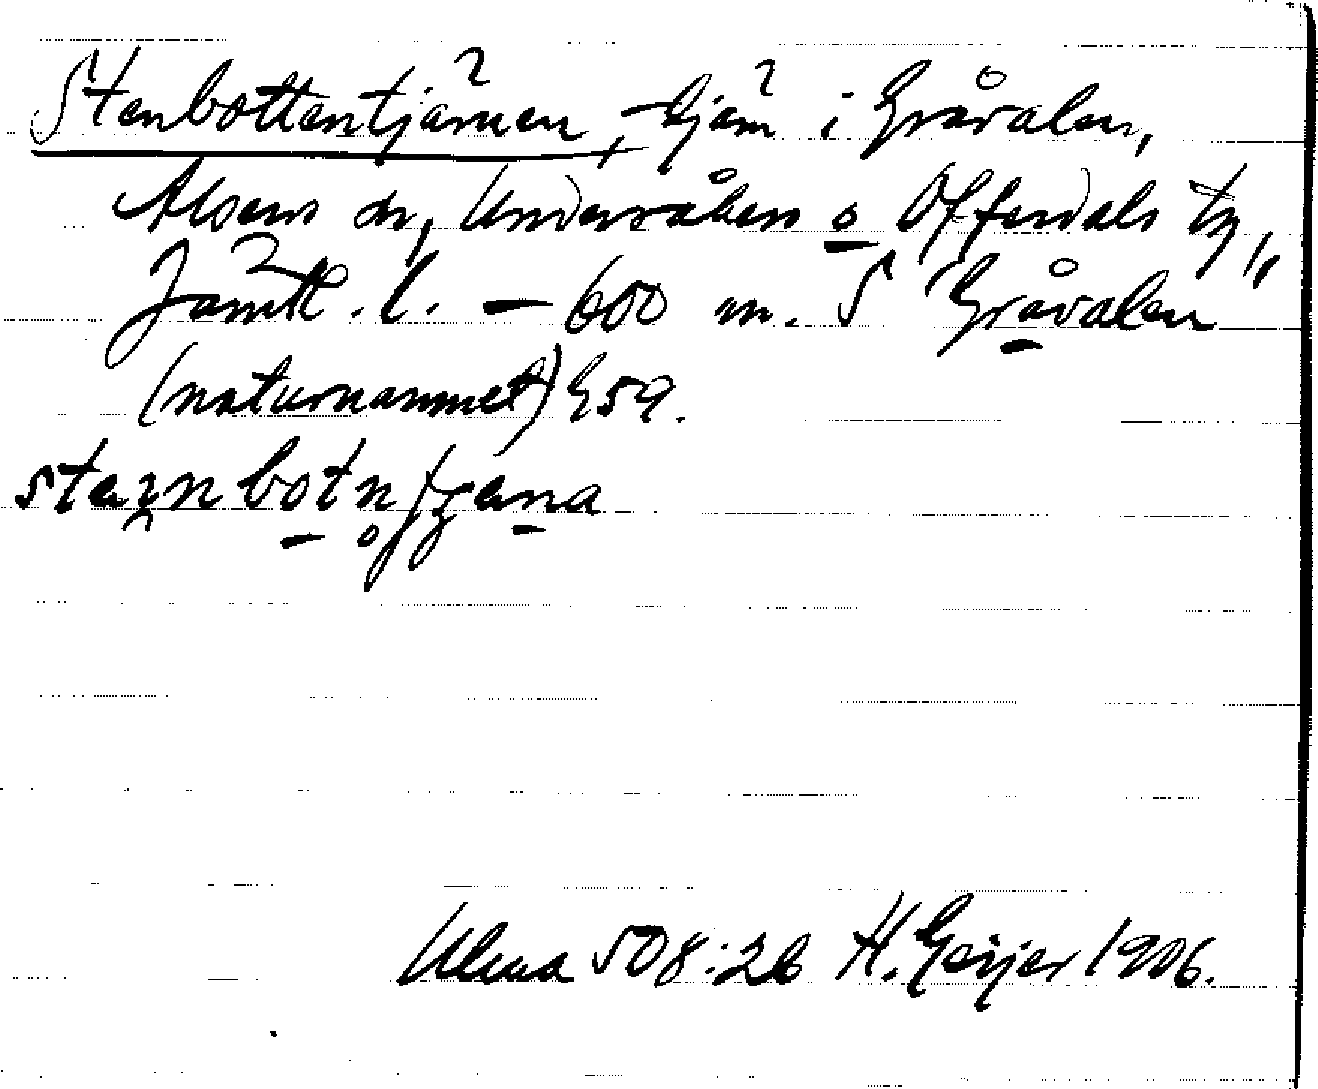 Stenbottentjärnen, tjärn i Gråvalen,
Alsens sn, Undersåkers o Offerdals tg,
Jämtl. l. — 600 m. S Gråvalen"
(naturnamnet) G59.
stæɪnbotn̥ʃæɳa
Uluna 508:26 H. Geijer 1906.